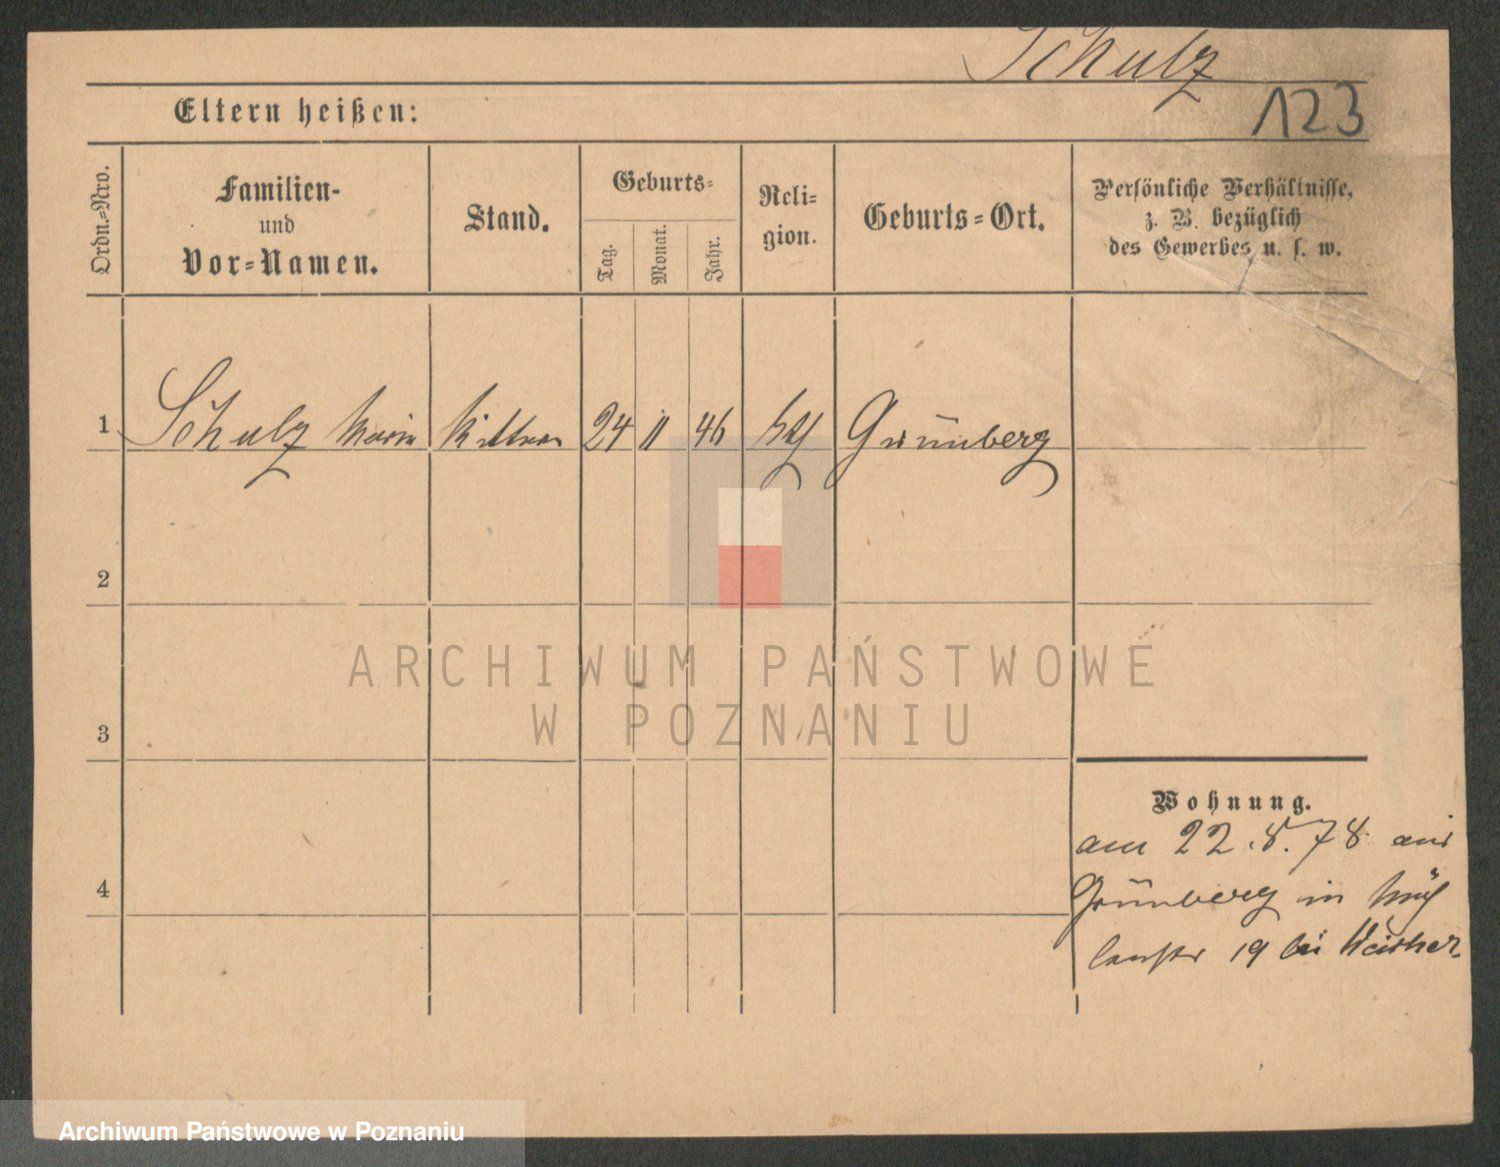 Schulz
123
Eltern heißen:
Ordn.=Nro.
Familien-
und
Vor=Namen.
Stand.
Geburts=
Tag.
Monat.
Jahr.
Reli=
gion.
Geburts=Ort.
Persönliche Verhältnisse,
z. B. bezüglich
des Gewerbes u. s. w.
1 Schulz Maria 24 11 46 Grünberg
2
3
4
Wohnung.
am 22.8.78 aus
Grünberg in
19 bei
ARCHIWUM PAŃSTWOWE
W POZNANIU
Archiwum Państwowe w Poznaniu